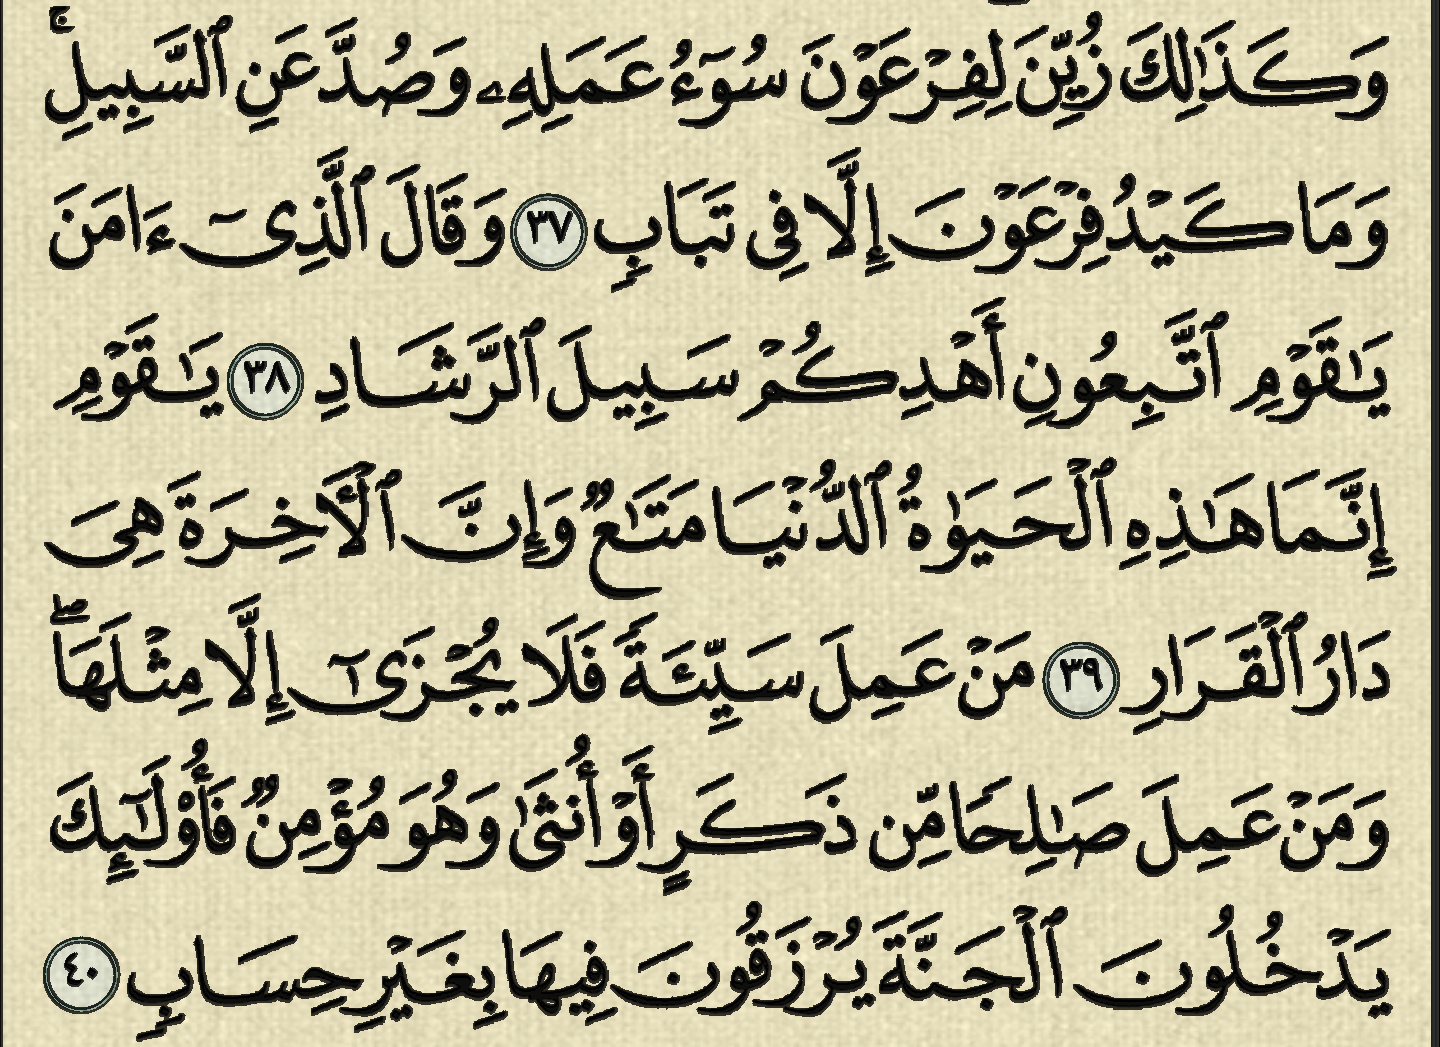 وَكَذَٰلِكَ زُيِّنَ لِفِرْعَوْنَ سُوٓءُ عَمَلِهِۦ وَصُدَّ عَنِ ٱلسَّبِيلِ ۚ
وَمَا كَيْدُ فِرْعَوْنَ إِلَّا فِى تَبَابٍ ٣٧ وَقَالَ ٱلَّذِىٓ ءَامَنَ
يَـٰقَوْمِ ٱتَّبِعُونِ أَهْدِكُمْ سَبِيلَ ٱلرَّشَادِ ٣٨ يَـٰقَوْمِ
إِنَّمَا هَـٰذِهِ ٱلْحَيَوٰةُ ٱلدُّنْيَا مَتَـٰعٌ وَإِنَّ ٱلْأَخِرَةَ هِىَ
دَارُ ٱلْقَرَارِ ٣٩ مَنْ عَمِلَ سَيِّئَةً فَلَا يُجْزَىٰٓ إِلَّا مِثْلَهَا ۖ
وَمَنْ عَمِلَ صَـٰلِحًا مِّن ذَكَرٍ أَوْ أُنثَىٰ وَهُوَ مُؤْمِنٌ فَأُو۟لَـٰٓئِكَ
يَدْخُلُونَ ٱلْجَنَّةَ يُرْزَقُونَ فِيهَا بِغَيْرِ حِسَابٍ ٤٠